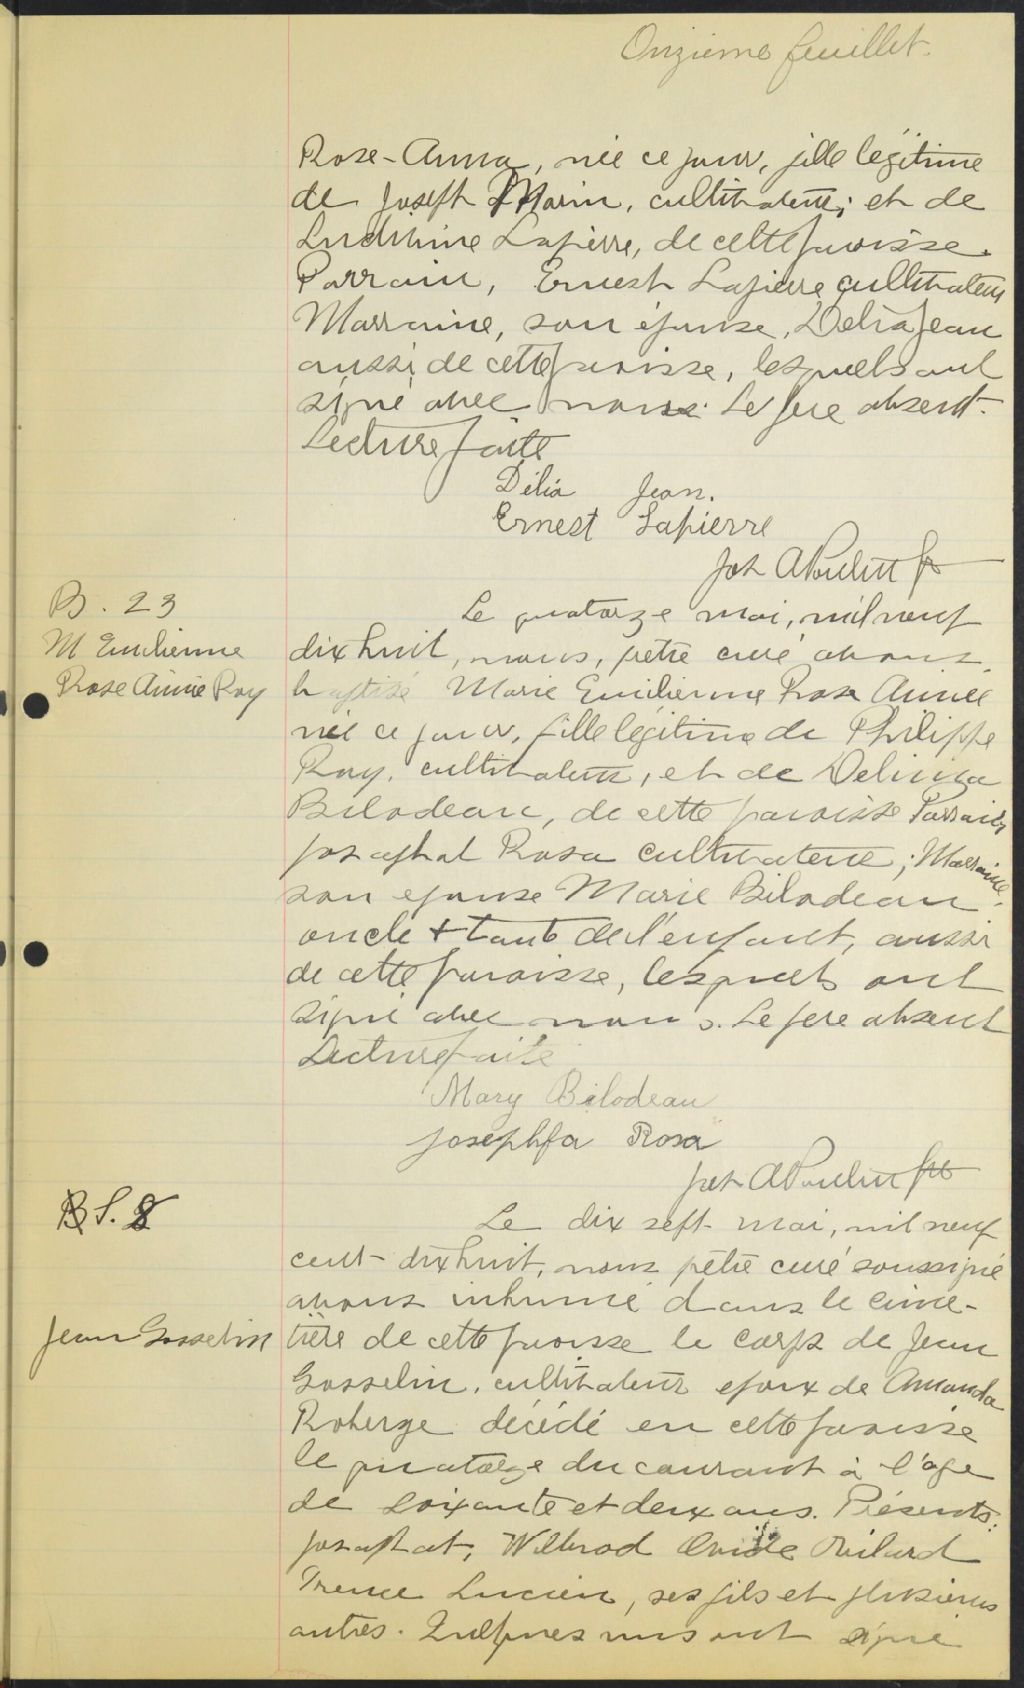 Onzieme feuillet.
Rose-Anna, née ce jour, fille légitime
de Joseph Morin, cultivateur; et de
Lapierre, de cette paroisse.
Parrain, Ernest Lapierre cultivateur
Marraine, son épouse, Delia Jean
aussi de cette paroisse, lesquels ont
signé avec nous. Le père absent.
Lecture faite
Délia Jean.
Ernest Lapierre
Jos A Poulin ptr
B. 23
M Emilienne
Rose Aimée Roy
Le quatorze mai, mil neuf
dix huit, nous, prêtre curé avons
baptisé Marie Emilienne Rose Aimée
née ce jour, fille légitime de Philippe
Roy, cultivateur, et de Delima
Bilodeau, de cette paroisse Parrain
Josaphat Rosa cultivateur; Marraine
son epouse Marie Bilodeau
oncle + tante de l'enfant, aussi
de cette paroisse, lesquels ont
signé avec nous. Le père absent
Lecture faite
Mary Bilodeau
Josephfa Rosa
Jos A Poulin ptr
S. 8
Jean Gosselin
Le dix sept mai, mil neuf
cent dix huit, nous prêtre curé soussigné
avons inhumé dans le cime-
tière de cette paroisse le corps de Jean
Gosselin, cultivateur epoux de Amanda
Roberge décédé en cette paroisse
le quatorze du courant à l'age
de soixante et deux ans. Présents:
Josaphat, Wilbrod Ovide
Lucien, ses fils et plusieurs
autres. Quelques uns ont signé